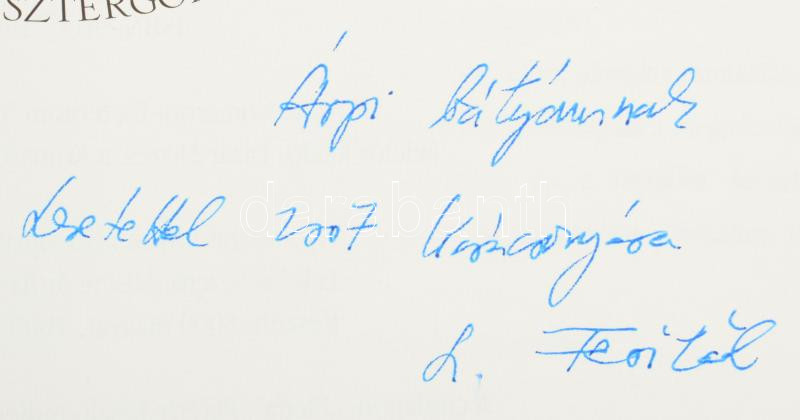 SZTERGO
Árpi bátyámnak
szeretettel 2007 Karácsonyára
L. Feritől
darabanth